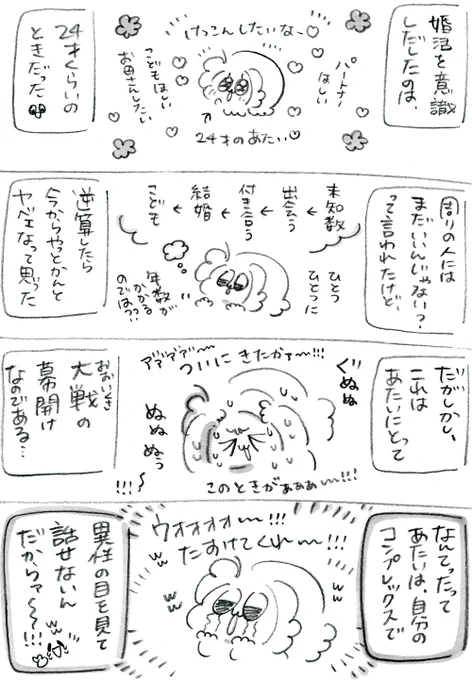 婚活を意識
しだしたのは、
けっこんしたいなー♡
パートナー
ほしい
こどもほしい
お母さんしたい
24才のあたい♡
24才くらいの
ときだった
周りの人には
まだいいんじゃない?
って言われたけど、
未知数
↓
出会う
↓
付き合う
↓
結婚
↓
こども
ひとつ
ひとつに
年数が
かかる
のでは??
逆算したら
今からやっとかんと
ヤベェなって思った
だがしかし、
これは
あたいにとって
ぐぬぬ
ア゙ア゙ア゙ア゙〜
ついにきたかァー!!!
ぬぬ
ぬぅ
〜!!!
このときがぁぁぁー!!!
おおいき
大戦の
幕開け
なのである…
なんてったって
あたいは、自分の
コンプレックスで
ウォォォォ〜!!!
たすけてくれ〜!!!
異性の目を見て
話せないん
だからァ〜!!!